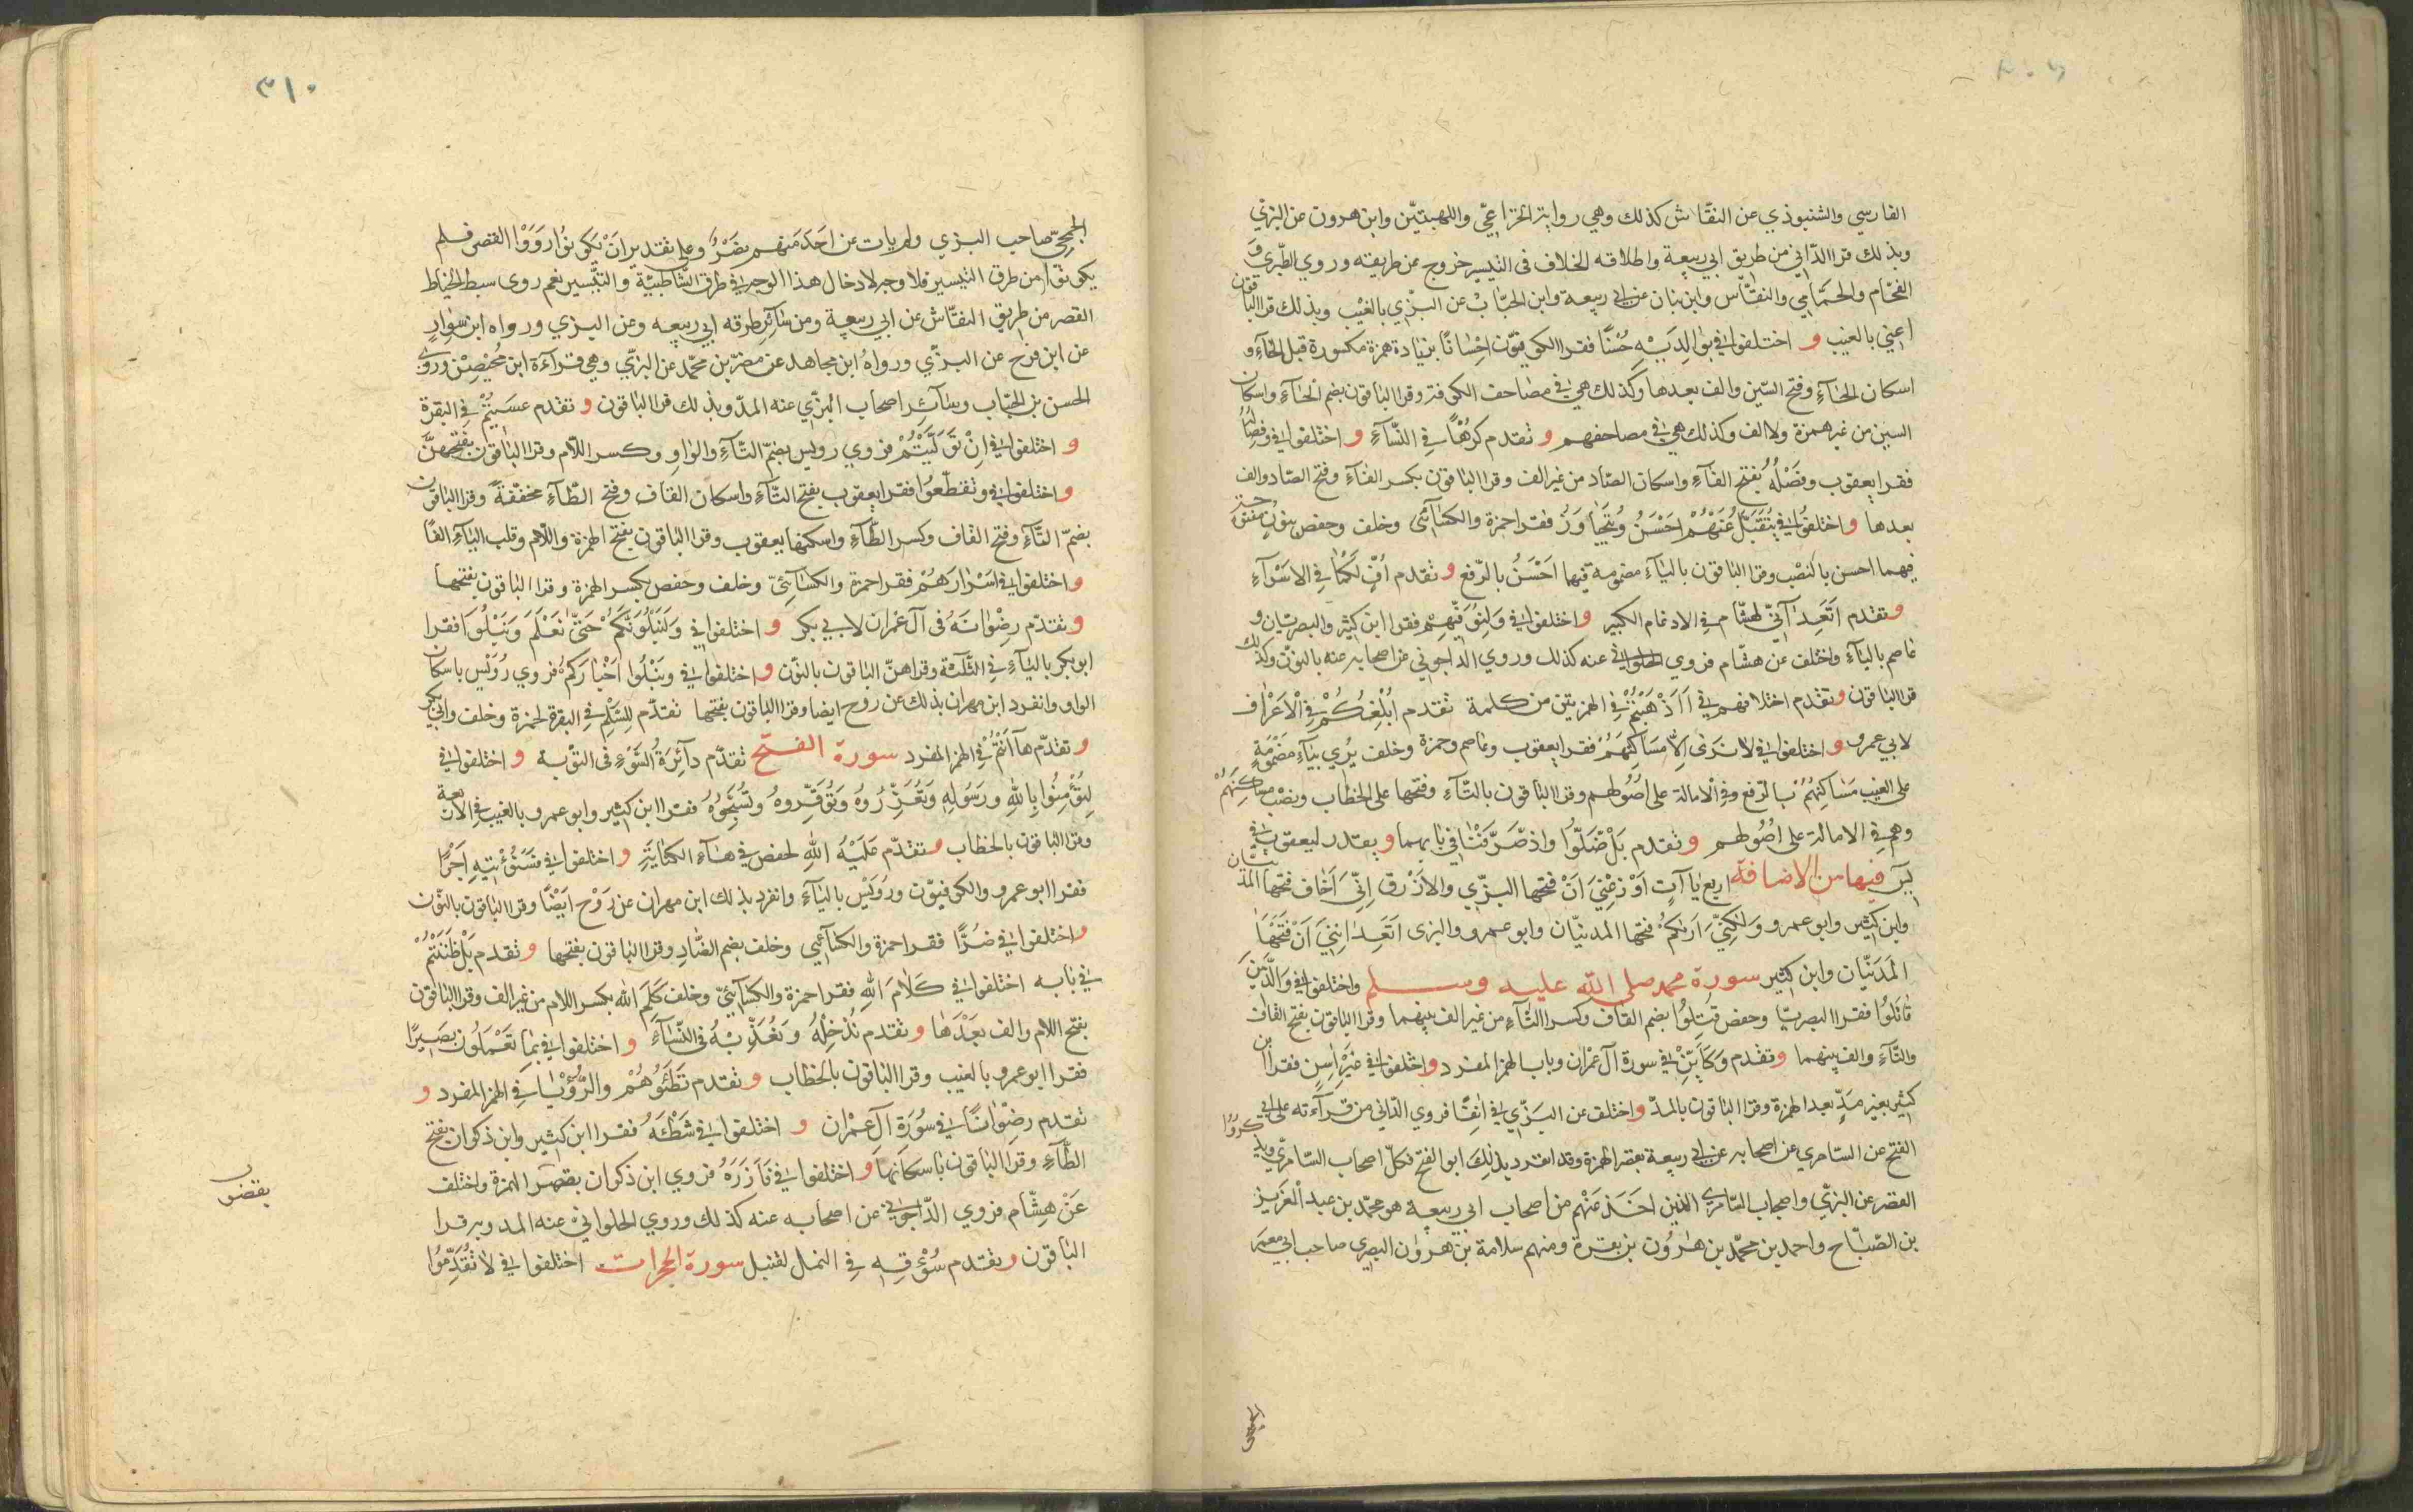 الفارسي والشنبوذي عن النقاش كذلك وهي رواية الخزاعيّ واللهبيّين وابن هرون عن البزي
وبذلك قرا الدّاني من طريق ابي ربيعة واطلاقه الخلاف في التيسير خروج عن طريقه وروي الطّبري و
الفحّام والحمّامي والنقّاش وابن بنان عن ابي ربيعة وابن الحبّاب عن البزّي بالغيب وبذلك قرا الباقون
اعني بالغيب و اختلفوا في بوالِدَيْهِ حُسْنًا فقرا الكوفيّون اِحْسَانًا بزيادة همزة مكسورة قبل الحآء و
اسكان الحآءِ وفتح السّين والف بعدها وكذلك هي في مصاحف الكوفة وقرا الباقون بضم الحآءِ واسكان
السين من غير همزة ولا الف وكذلك هي في مصاحفهم و تقدم كرهًا في النّسآءِ و اختلفوا في وفصاله
فقرا يعقوب وفَصْلُهُ بفتح الفآءِ واسكان الصّاد من غير الف وقرا الباقون بكسر الفآءِ وفتح الصّاد والف
بعدها و اختلفوا في يُتَقَبَّلُ عَنْهُمْ اَحْسَنُ ويُتَجَاوَزُ فقرا حمزة والكسآئي وخلف وحفص بنون مفتوحة
فيهما احسن بالنصْب وقرا الباقون باليآءِ مضمومة فيها احْسَنُ بالرّفع و تقدم اُفٍّ لَكُمَا في الاسْرآءِ
و تقدم اَتَعِدَآنِّي لهشام في الادغام الكبير و اختلفوا في وَلِيُوَفِّيَهُمْ فقرا ابن كثير والبصريان و
عاصم باليآءِ واختلف عن هشّام فروي الحلواني عنه كذلك وروي الداجوني عن اصحابه عنه بالنون وكذلك
قرا الباقون و تقدم اختلافهم في اَاَذْهَبْتُمْ في الهمزتين من كلمة تقدم اُبَلِّغُكُمْ في الْاَعْراف
لابي عمرو و اختلفوا في لا تَرَى اِلّا مَسَاكِنَهُمْ فقرا يعقوب وعاصم وحمزة وخلف يُرَي بيآءٍ مَضْمُومَةٍ
على الغيب مَسَاكِنُهُمْ بالرّفع وفي الامالة على اصُولهم وقرا الباقون بالتّآءِ وفتحها على الخطاب ونصْب مساكِنَهُمْ
وهم في الامالة على اُصُولهم و تقدم بَلْ ضَلّوُا واذ صَّرَفْنَا في بابهما و يقدر ليعقوب في
يسَ فيها من الاضافة اربع يَاآتٍ اَوْزِعْنِيَ اَنْ فتحها البزّي والازرق اِنِّيَ اَخاف فتحها المدنيّان
وابن كثير وابو عمرو وَلٰكِنِّيَ اَرٰىكُمْ فتحها المدنيّان وابو عمرو والبزى اَتَعِدَانِنِيَ اَنْ فَتَحَهَا
المَدَنيّان وابن كثير سورة محمد صلى الله عليه وسلم واختلفوا في وَالَّذِينَ
قاتَلُوا فقرا البصريّا وحفص قُتِلُوا بضم القاف وكسر التآءِ من غير الف بينهما وقرا الباقون بفتح القاف
والتّآءِ والف بينهما و تقدم وَكَاَيِّنْ في سورة آل عمران وباب الهمز المفرد و اختلفوا في غَيْرِ اٰسِنٍ فقرا ابن
كثير بغير مَدٍّ بعد الهمزة وقرا الباقون بالمدّ و اختلف عن البَزّي في اٰنِفًا فروي الدّاني من قرآءته على ابي
الفتح عن السّامري عن اصحابه عن ابي ربيعة بقصر الهمزة وقد انفرد بذلِكَ ابو الفتح فكلّ اصحاب السّامرّي لم يذكروا
القصر عن البزّي واصحاب السّامري الذين اخَذ عَنْهم من اصحاب ابي ربيعة هو محمّد بن عبد الْعَزيز
بن الصّبّاح واحمد بن محمّد بن هٰرُون بن بقرة ومنهم سلامة بن هرُوٰن البصري صاحب ابي معمر
٣١٠
الجمحيّ صاحب البزي ولم يات عن احَد منهم قصْرٌ وعلى تقدير اَنْ يَكُونُوُا رَوَوْا القصر فلم
يكونوا من طرق التيسير فلا وجه لادخال هذا الوجه في طرق الشّاطبيّة والتيسير نعم روى سبط الخياط
القصر من طريق النقّاش عن ابي ربيعة ومن سآئر طرقه ابي ربيعه وعن البزي ورواه ابن سوارٍ
عن ابن فرح عن البزّي ورواهُ ابن مجاهد عن مضر بن محمّد عن البزّي وهي قرآءة ابن مُحيْصِنْ وروى
الحسن بن الحبّاب وسآئر اصحاب البزّي عنه المدّ وبذلك قرا الباقون و تقدم عسَيتُمْ في البقرة
و اختلفوا في اِنْ تَوَلَّيْتُمْ فروي رويس بضمّ التّآءِ والواوِ وكسر اللّام وقرا الباقون بفتحهنّ
و اختلفوا في وتقطّعوُا فقرا يعقوب بفتح التّآءِ واسكان القاف وفتح الطّآءِ مخفّفةً وقرا الباقون
بضمّ التّآءِ وفتح القاف وكسر الطّآءِ واسكنها يعقوب وقرا الباقون بفتح الهمزة واللّام وقلب اليآءِ الفًا
و اختلفوا في اسْرٰارَهُمْ فقرا حمزة والكسآئيّ وخلف وحفص بكسر الهمزة وقرا الباقون بفتحها
و تقدّم رِضْوٰانَهُ في آل عمران لابي بكر و اختلفوا في وَلَنَبْلُوَنَّكُمْ حَتّى نَعْلَمَ وَنَبْلُوَا فقرا
ابو بكر باليآءِ في الثّلٰثة وقراهنّ الباقون بالنّون و اختلفوا في وَنَبْلُوا اَخْبٰارَكُمْ فروي رُوَيْس باسكان
الواو وانفرد ابن مهران بذلك عن روح ايضا وقرا الباقون بفتحها تقدّم للِسَّلْمِ في البقرة لحمزة وخلف وابي بكر
و تقدّم هآ اَنْتُمْ في الهمز المفرد سورة الفتح تقدّم دآئِرَةُ السَّوْءِ في التوبة و اختلفوا في
لِتُؤْمِنُوا بِاللهِ ورَسُولِهِ وَتُعَزِّرُوهُ وَتُوَقِّرُوهُ وتُسَبِّحُوُهُ فقرا ابن كثير وابو عمرو بالغيب في الاربعة
وقرا الباقون بالخطاب و تقدّم عَلَيْهُ اللهِ لحفص في هآءِ الكنايَةِ و اختلفوا في فَسَنُؤْتِيهِ اَجْرًا
فقرا ابو عمرو والكوفيّون ورُوَيْس باليآءِ وانفرد بذلك ابن مهران عن رَوْح ايَضًا وقرا الباقون بالنّون
و اختلفوا في ضُرًّا فقرا حمزة والكسآئي وخلف بضم الضّادِ وقرا الباقون بفتحها و تقدم بَلْ ظَنَنْتُمْ
في بابه اختلفوا في كَلٰامَ اللهِ فقرا حمزة والكسآئيّ وخلف كَلِمَ الله بكسر اللام من غير الف وقرا الباقون
بفتح اللام والف بَعْدَهَا و تقدم نُدْخِلْهُ وَنُعَذِّبْهُ في النّسَآءِ و اختلفوا في بما تَعْمَلُون بَصيرًا
فقرا ابو عمرو بالغيب وقرا الباقون بالخطاب و تقدم تَطَئوُهُمْ والرُّؤْيَا في الهمز المفرد و
تقدم رضِوْانًا في سُورَةِ آل عمْران و اختلفوا في شَطْئَهُ فقرا ابن كثير وابن ذكوان بفتح
الطّآءِ وقرا الباقون باسكانها و اختلفوا في فَاٰزَرَهُ فروي ابن ذكوان بقصر الهمزة واختلف
عَنْ هِشّام فروي الدّاجونيّ عن اصحابه عنه كذلك وروي الحلواني عنه المد وبه قرا
الباقون و تقدم سُؤْقِهِ في النمل لقنبل سورة الحجرات اختلفوا في لا تُقَدِّمُوا